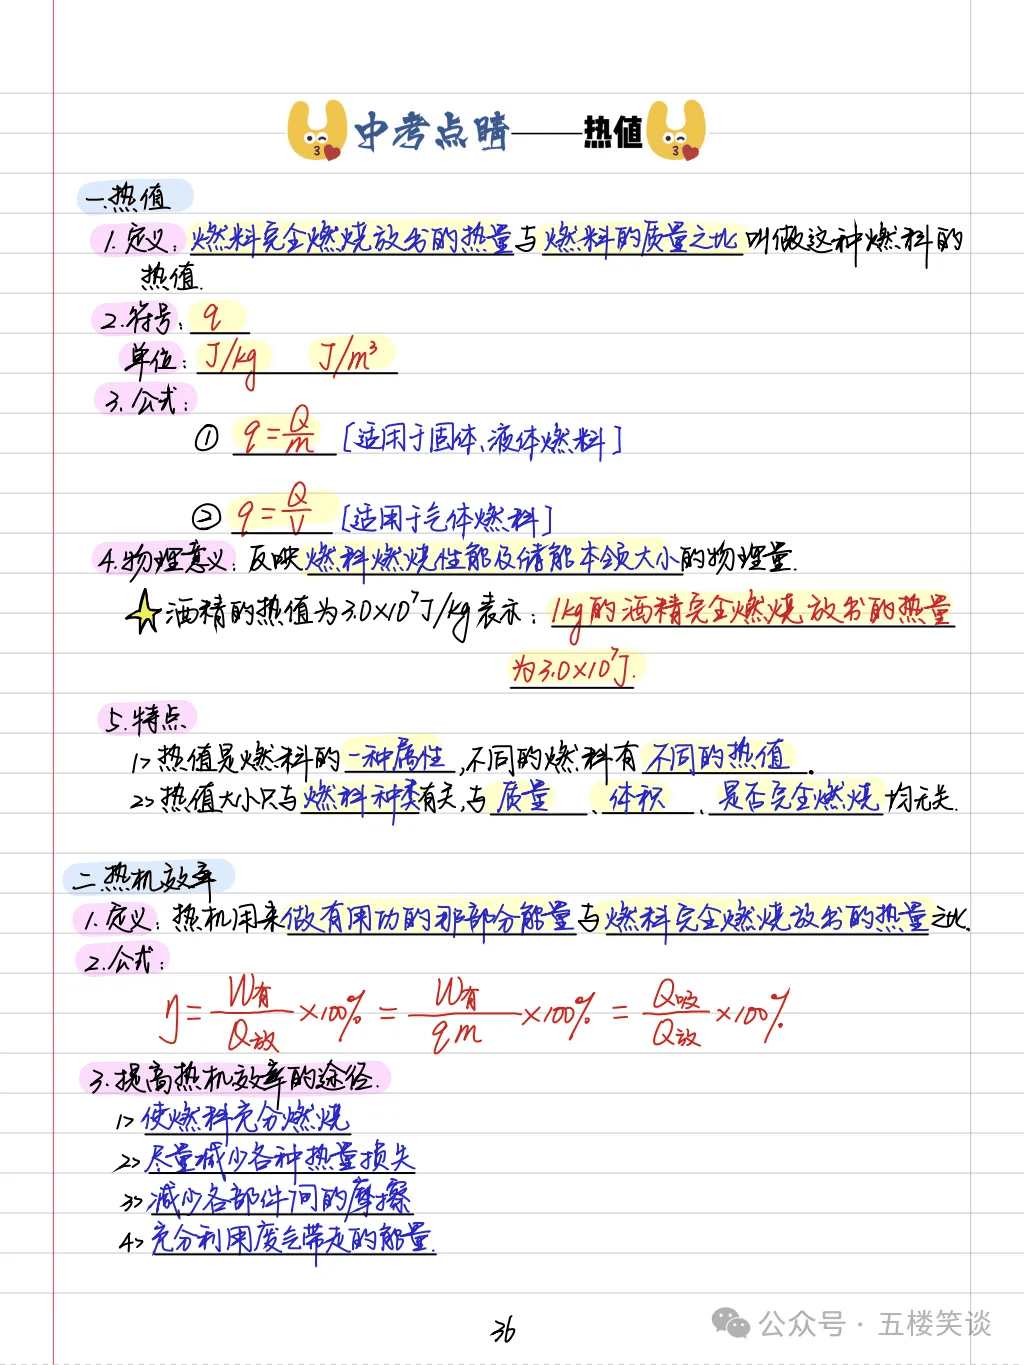 中考点睛——热值
一.热值
1.定义：燃料完全燃烧放出的热量与燃料的质量之比叫做这种燃料的
热值.
2.符号：q
单位：J/kg J/m³
3.公式：
① q=Q/m [适用于固体、液体燃料]
② q=Q/V [适用于气体燃料]
4.物理意义：反映燃料燃烧性能及储能本领大小的物理量.
☆酒精的热值为3.0×10⁷J/kg表示：1kg的酒精完全燃烧放出的热量
为3.0×10⁷J.
5.特点
1> 热值是燃料的一种属性,不同的燃料有不同的热值.
2> 热值大小只与燃料种类有关,与质量、体积、是否完全燃烧均无关.
二.热机效率
1.定义：热机用来做有用功的那部分能量与燃料完全燃烧放出的热量之比.
2.公式：
η=W有/Q放×100%=W有/qm×100%=Q吸/Q放×100%
3.提高热机效率的途径.
1> 使燃料充分燃烧
2> 尽量减少各种热量损失
3> 减少各部件间的摩擦
4> 充分利用废气带走的能量.
36
公众号·五楼笑谈